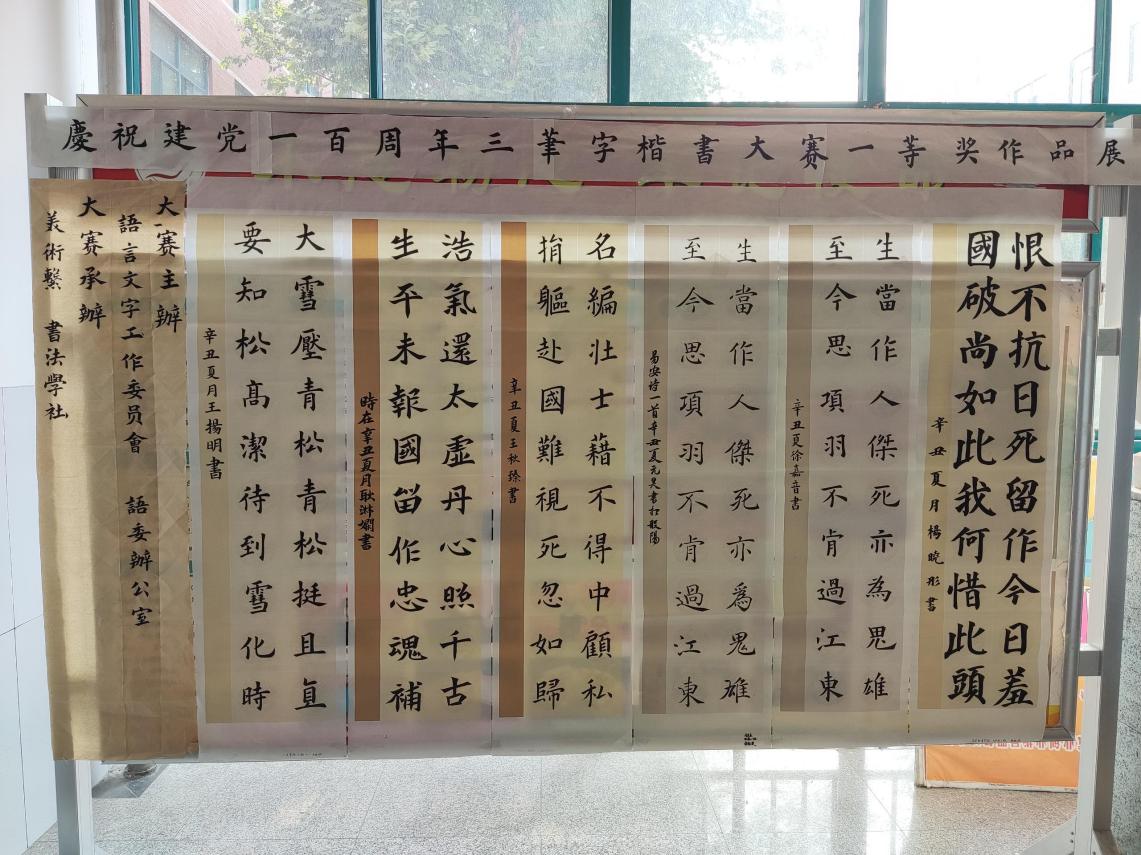 慶祝建党一百周年三筆字楷書大赛一等奖作品展
恨不抗日死留作今日羞
國破尚如此我何惜此頭
辛丑夏月楊晥彤書
生當作人傑死亦為鬼雄
至今思項羽不肯過江東
辛丑夏徐嘉音書
生當作人傑死亦爲鬼雄
至今思項羽不肯過江東
易安诗一首辛丑夏元昊書於
名編壮士藉不得中顧私
捐軀赴國難視死忽如歸
辛丑夏王秋臻書
浩氣還太虛丹心照千古
生平未報國留作忠魂補
時在辛丑夏月耿淋斕書
大雪壓青松青松挺且直
要知松高潔待到雪化時
辛丑夏月王揚明書
大赛主辦
語言文字工作委员會 語委辦公室
大赛承辦
美術繫 書法學社